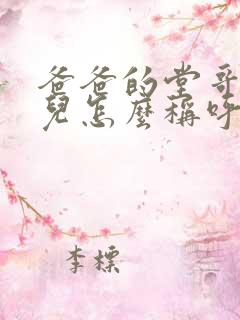 爸爸的堂哥
兒怎麼稱呼
李標